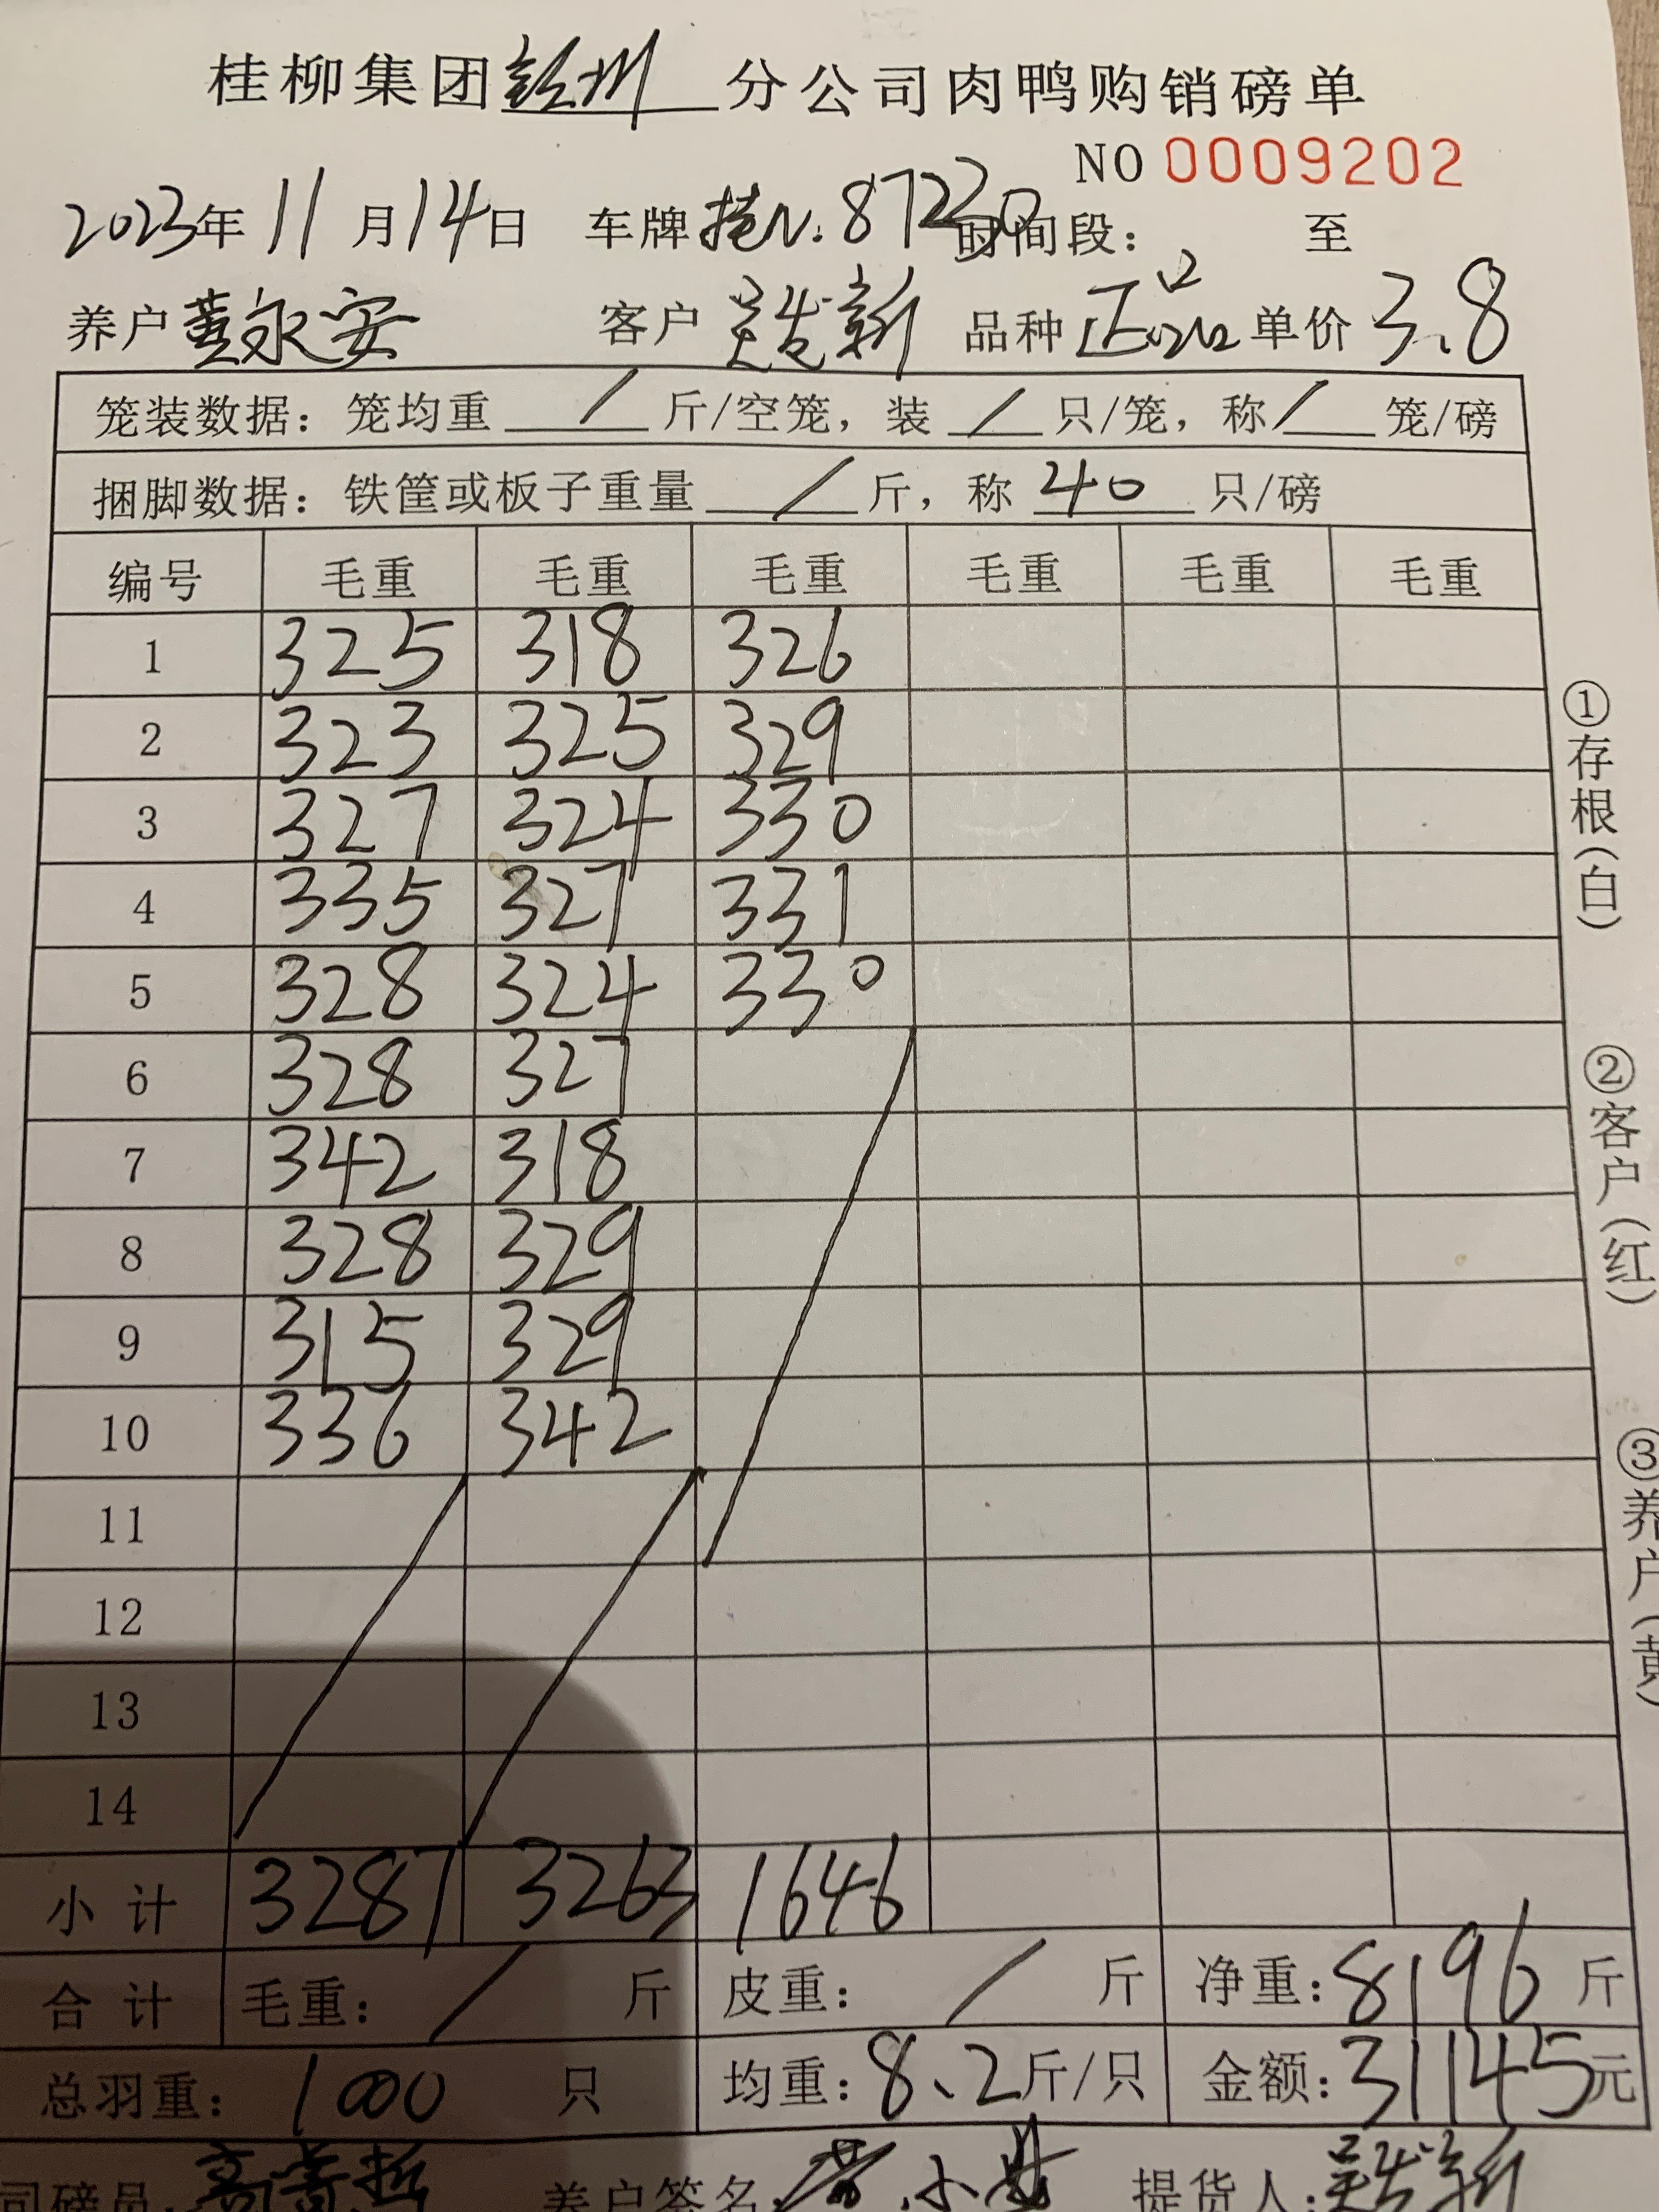 桂柳集团彭州分公司肉鸭购销磅单
NO 0009202
2023年11月14日 车牌 8723 时间段: 至
养户黄永安 客户吴发新 品种正品 单价3.8
笼装数据:笼均重 / 斤/空笼,装 / 只/笼,称 / 笼/磅
捆脚数据:铁筐或板子重量 / 斤,称 40 只/磅
编号 毛重 毛重 毛重 毛重 毛重 毛重
1 325 318 326
2 323 325 329
3 327 324 330
4 335 327 331
5 328 324 330
6 328 327
7 342 318
8 328 329
9 315 329
10 336 342
11
12
13
14
小计 3287 3263 1646
合计 毛重: / 斤 皮重: / 斤 净重:8196斤
总羽重:1000 只 均重:8.2斤/只 金额:31145元
司磅员: 养户签名 提货人:吴发新
①存根(白) ②客户(红) ③养户(黄)